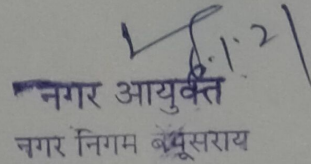 नगर आयुक्त
नगर निगम बेगूसराय